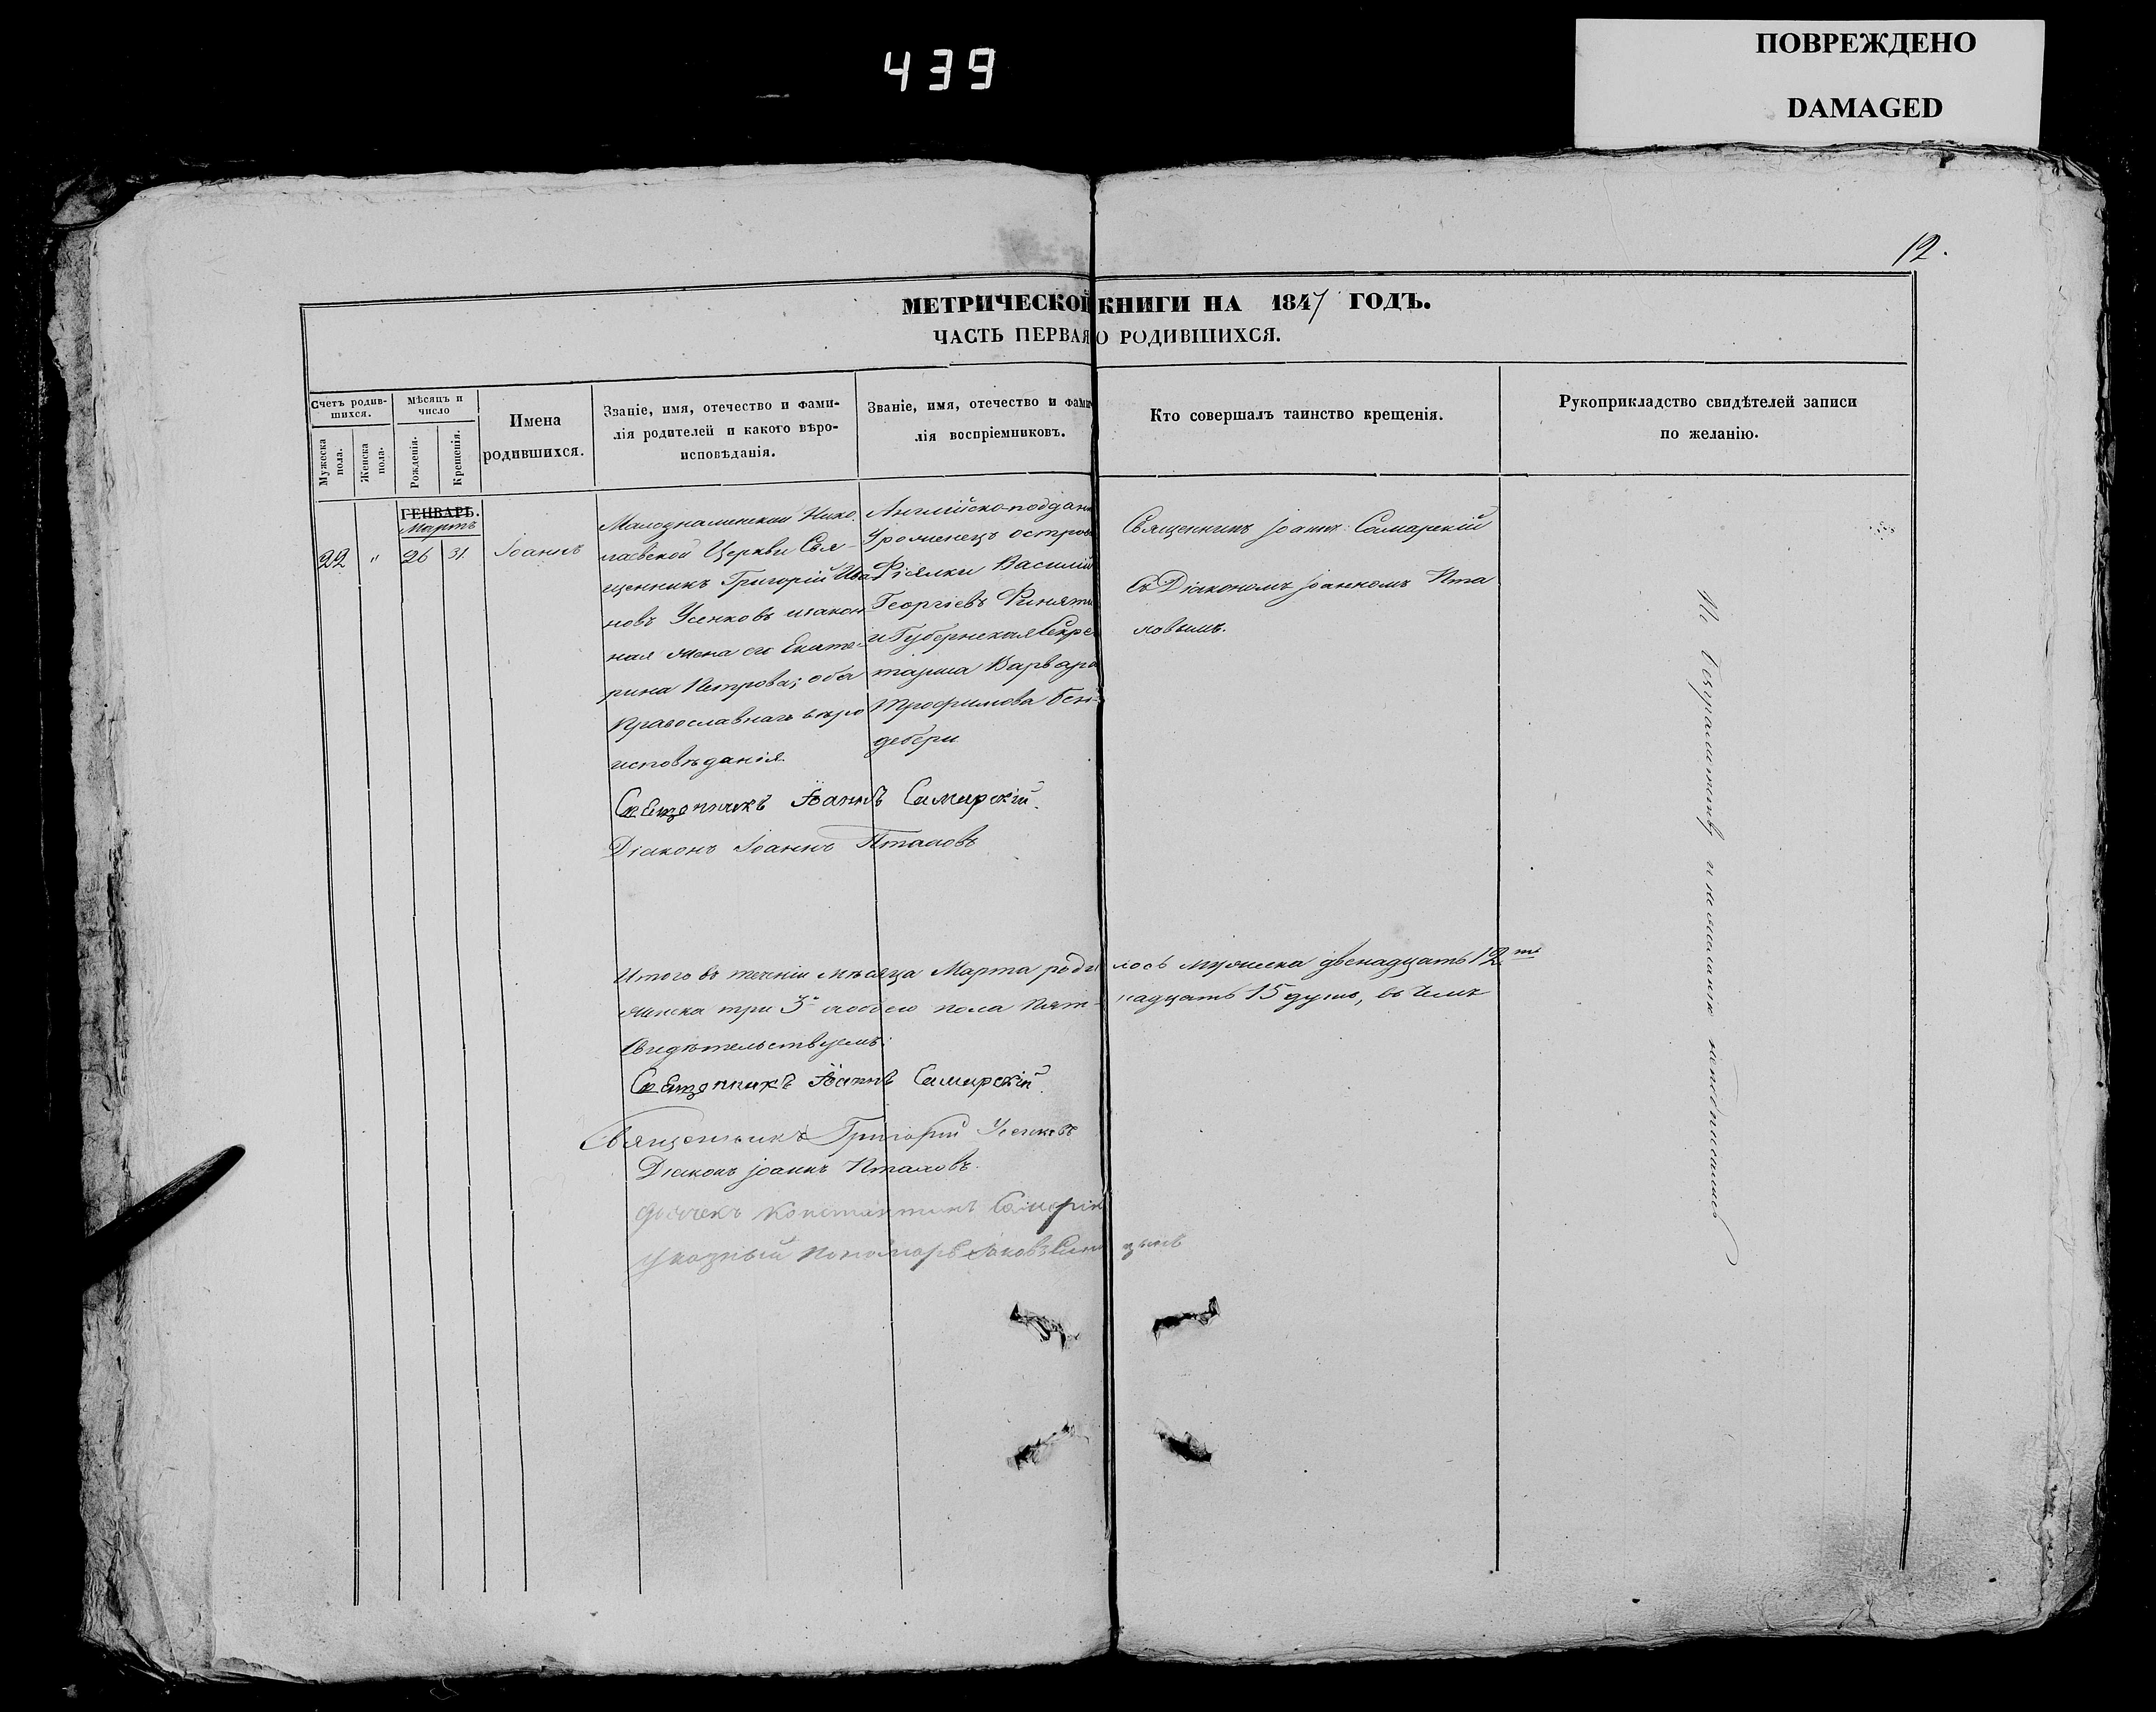 439
ПОВРЕЖДЕНО
DAMAGED
12.
МЕТРИЧЕСКОЙ КНИГИ НА 1847 ГОДЪ.
ЧАСТЬ ПЕРВАЯ О РОДИВШИХСЯ.
Счетъ родив-
шихся.
Мужеска пола.
Женска пола.
Мѣсяцъ и
число
Рожденія.
Крещенія.
Имена
родившихся.
Званіе, имя, отечество и фами-
лія родителей и какого вѣро-
исповѣданія.
Званіе, имя, отечество и фами
лія воспріемниковъ.
Кто совершалъ таинство крещенія.
Рукоприкладство свидѣтелей записи
по желанію.
ГЕНВАРЬ.
Мартъ
22 " 26 31 Іоаннъ
Малознаменской Нико
лаевской Церкви Свя-
щенникъ Григорій Ива
новъ Усенковъ и закон
ная жена его Екате-
рина Петрова; оба
православнаго вѣро
исповѣданія.
Англійско-поддан
Уроженецъ острова
Василій
Георгіевъ
и Губернская Секре
тарша Варвара
Трофимова Бен-
дебери
Священникъ Іоаннъ Самарскій
Съ Діакономъ Іоанномъ Пта
ловымъ.
Священникъ Іоаннъ Самарскій.
Діаконъ Іоаннъ Пталовъ
Итого въ теченіи мѣсяца Марта родилось мужеска двенадцать 12ть
женска три 3 обоего пола пят-надцать 15 душъ, въ чемъ
Свидѣтельствуемъ:
Священникъ Іоаннъ Самарскій.
Священникъ Григорій Усенковъ
Діаконъ Іоаннъ Пталовъ.
Дьячекъ Константинъ
Указный пономарь Іаковъ
По безграмотству и нежеланію неподписались